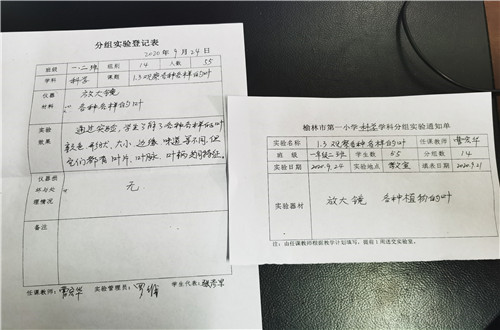 分组实验登记表
2020年9月24日
班级 一.二班 组别 14 人数 55
学科 科学 课题 1.3观察各种各样的叶
仪器 放大镜
材料 各种各样的叶
实验 通过实验,学生了解了各种各样的叶
效果 颜色、形状、大小、边缘、味道等不同,但
它们都有叶片、叶脉、叶柄的特征。
仪器损
坏与处 无
理情况
备注
任课教师: 实验管理员: 学生代表:
榆林市第一小学科学学科分组实验通知单
实验名称 1.3 观察各种各样的叶 任课教师
班级 一年级二班 学生数 55 分组数 14
实验日期 2020.9.24 实验地点 填表日期 2020.9.21
实验器材 放大镜 各种植物的叶
注:由任课教师根据教学计划填写,提前1周送交实验室。